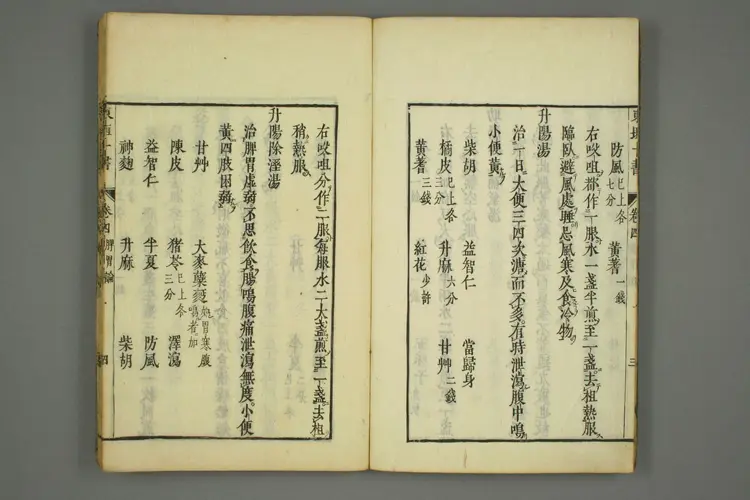 防風已上各七分　黃蓍一錢
右㕮咀都作一服水一盞半煎至一盞去柤熱服
臨臥避風處睡忌風寒及食冷物
升陽湯
治一日大便三四次溏而不多有時泄瀉腹中鳴
小便黃
柴胡　益智仁　當歸身
橘皮已上各三分　升麻六分　甘艸二錢
黃蓍三錢　紅花少許
三
右㕮咀分作二服每服水二大盞煎至一盞去柤
稍熱服
升陽除溼湯
治脾胃虛弱不思飲食腸鳴腹痛泄瀉無度小便
黃四肢困弱
甘艸　大麥蘗麪如胃寒腹鳴者加
陳皮　猪苓已上各三分　澤瀉
益智仁　半夏　防風
神麴　升麻　柴胡
東垣十書　卷四　脾胃論　四